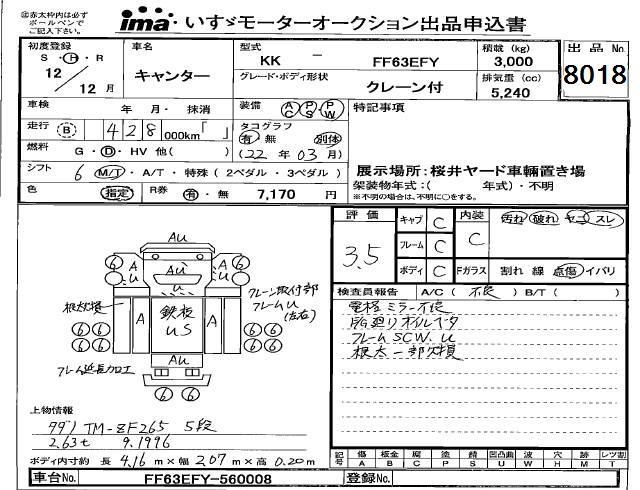 ㊟赤太枠内は必ず
ボールペンで
ご記入下さい。
ima・いすゞモーターオークション出品申込書
初度登録
S・H・R
12/12月
車名
キャンター
型式
KK － FF63EFY
グレード・ボディ形状
クレーン付
積載 (kg)
3,000
排気量 (cc)
5,240
出品No.
8018
車検 年 月・抹消
装備 AC PS PW
特記事項
走行 B 428 000km「 」
タコグラフ
有・無 別体
(22年03月)
燃料 G・D・HV 他( )
シフト 6 M/T・A/T・特殊(2ペダル・3ペダル)
展示場所:桜井ヤード車輛置き場
架装物年式:( 年式)・不明
※不明の場合は、不明に○をする。
色 指定 R券 有・無 7,170 円
評価
3.5
キャブ C
フレーム C
ボディ C
内装
C
汚れ 破れ ヤニ スレ
Fガラス 割れ 線 点傷 イバリ
検査員報告 A/C( 不良 ) B/T( )
電格ミラー不良
フレームSCW.U
根太一部欠損
AU
A
U
U
A
AU
6
6
6
6
根太損
A
鉄板
US
A
クレーン取付部
フレームU
(左右)
6 6
6 6
6 6
6 6
AU
フレーム延長加工
6 6
上物情報
TM-ZF265 5段
2.63t 9.1996
ボディ内寸約 長 4.16m×幅 2.07m×高 0.20m
記号 傷 板金 腐 塗 錆 凹凸曲 波 穴 無 レツ割
A B C P S U W H M T
車台No. FF63EFY-560008 登録No.